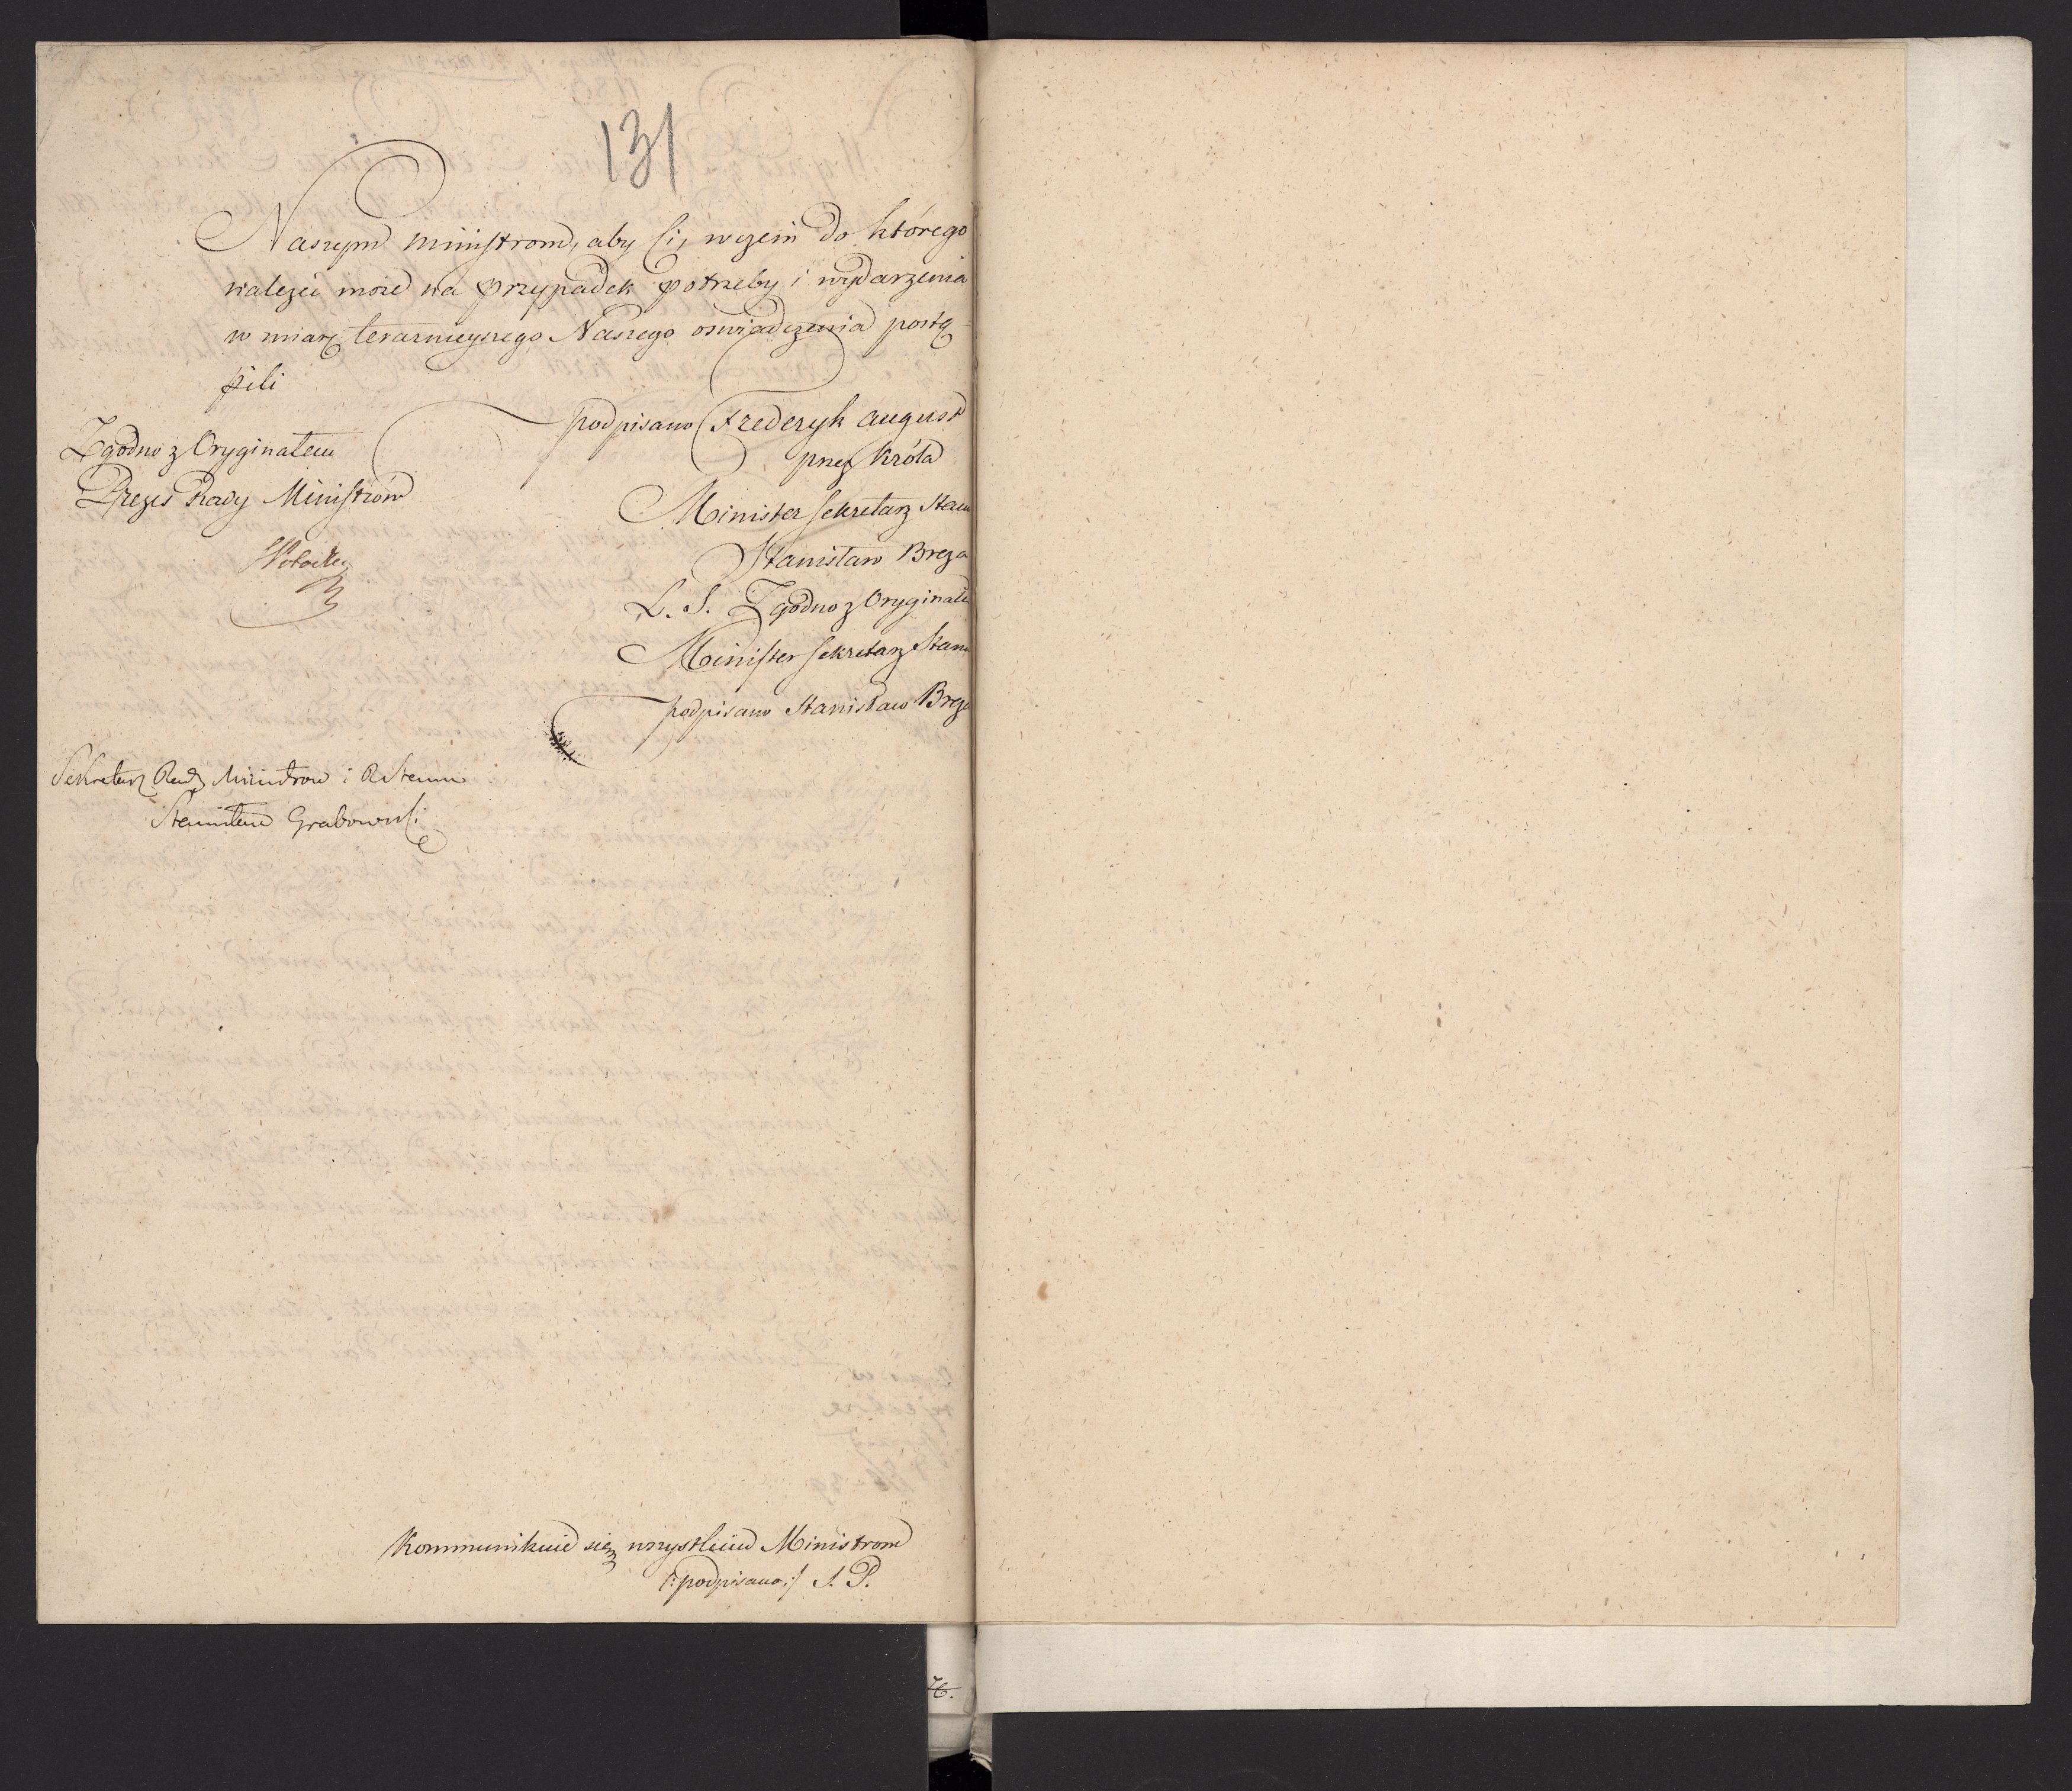 131
Naszym ministrom, aby się w czem do którego
należeć może na przypadek potrzeby i wydarzenia
w miarę teraznieyszego Naszego oswiadczenia postę
pili
podpisano Frederyk August
przez Króla
Minister Sekretarz Stanu
Stanisław Breza
L. S. Zgodno z Oryginałem
Minister Sekretarz Stanu
podpisano Stanisław Breza
Zgodno z Oryginałem
Prezes Rady Ministrów
Sekretarz Rady Ministrow i R. Stanu
Stanisław Grabowski
Kommunikuie się wszystkim Ministrom
/:podpisano:/ S. P.